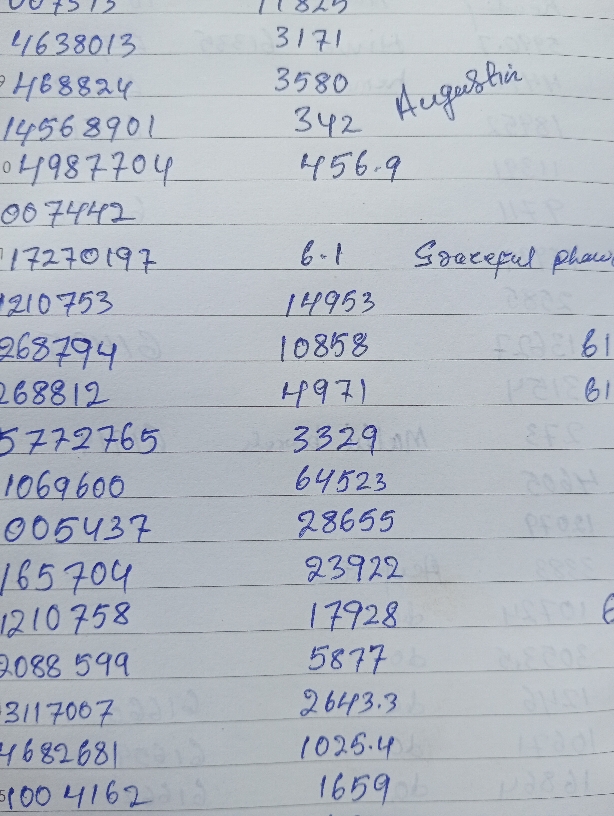 11825
4638013 3171
468824 3580
14568901 342 Augustin
4987704 456.9
007442
17270197 6.1 Graceful
1210753 14953
268794 10858 61
268812 4971 61
5772765 3329
1069600 64523
005437 28655
165704 23922
1210758 17928 6
2088599 5877
3117007 2643.3
4682681 1025.4
1004162 1659